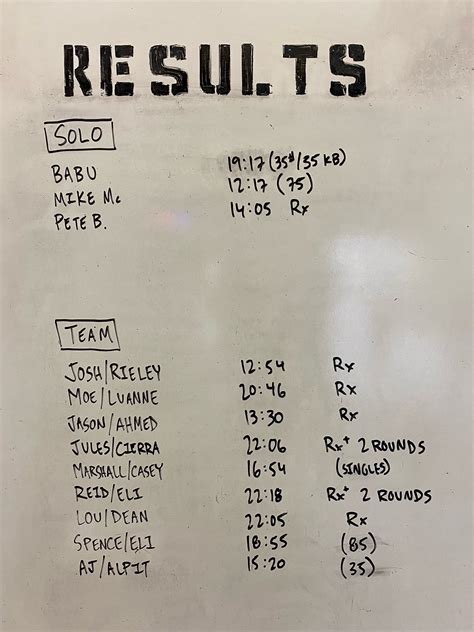 RESULTS
SOLO
BABU 19:17 (35#/35 KB)
MIKE Mc 12:17 (75)
PETE B. 14:05 Rx
TEAM
JOSH/RIELEY 12:54 Rx
MOE/LUANNE 20:46 Rx
JASON/AHMED 13:30 Rx
JULES/CIERRA 22:06 Rx+ 2 ROUNDS
MARSHALL/CASEY 16:54 (SINGLES)
REID/ELI 22:18 Rx+ 2 ROUNDS
LOU/DEAN 22:05 Rx
SPENCE/ELI 18:55 (85)
AJ/ALPIT 15:20 (35)